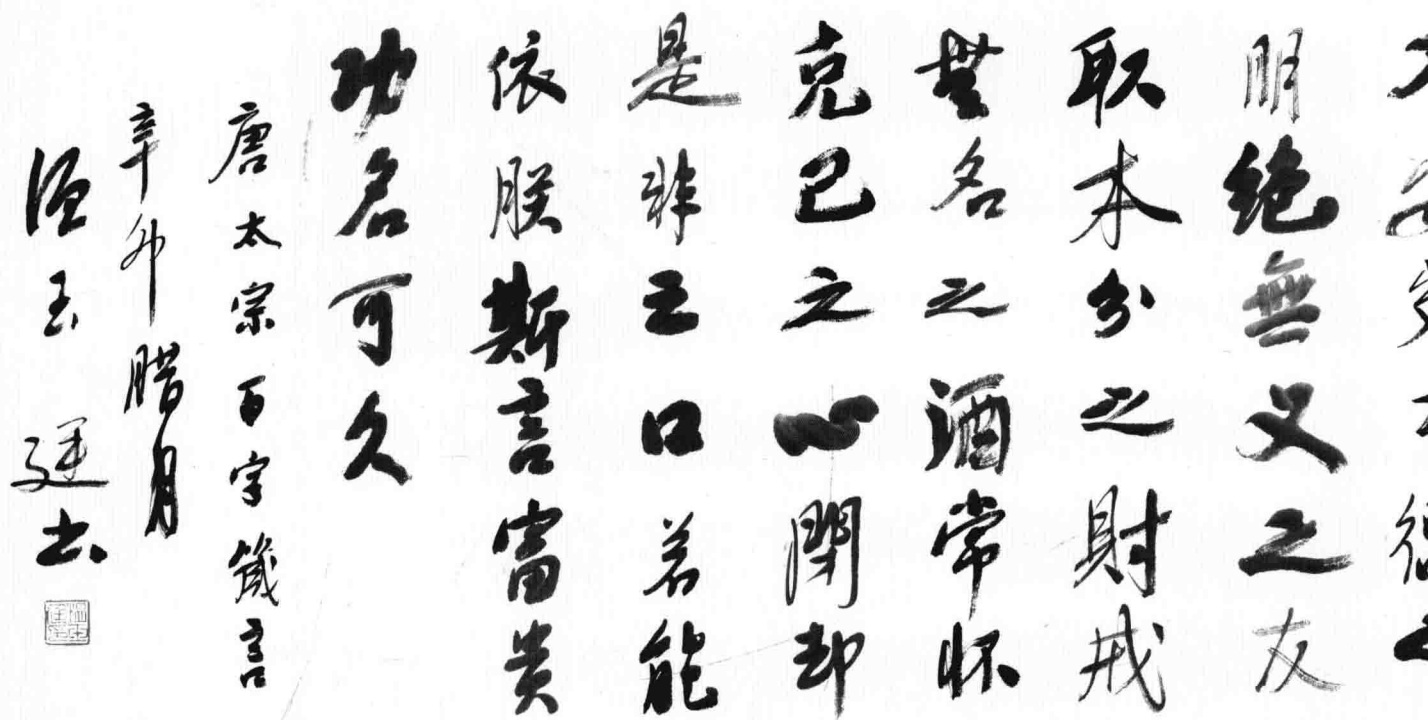 朋絶無义之友
取本分之財戒
無名之酒常怀
克己之心閉却
是非之口若能
依朕斯言富贵
功名可久
唐太宗百字箴言
辛卯腊月
温玉廷书